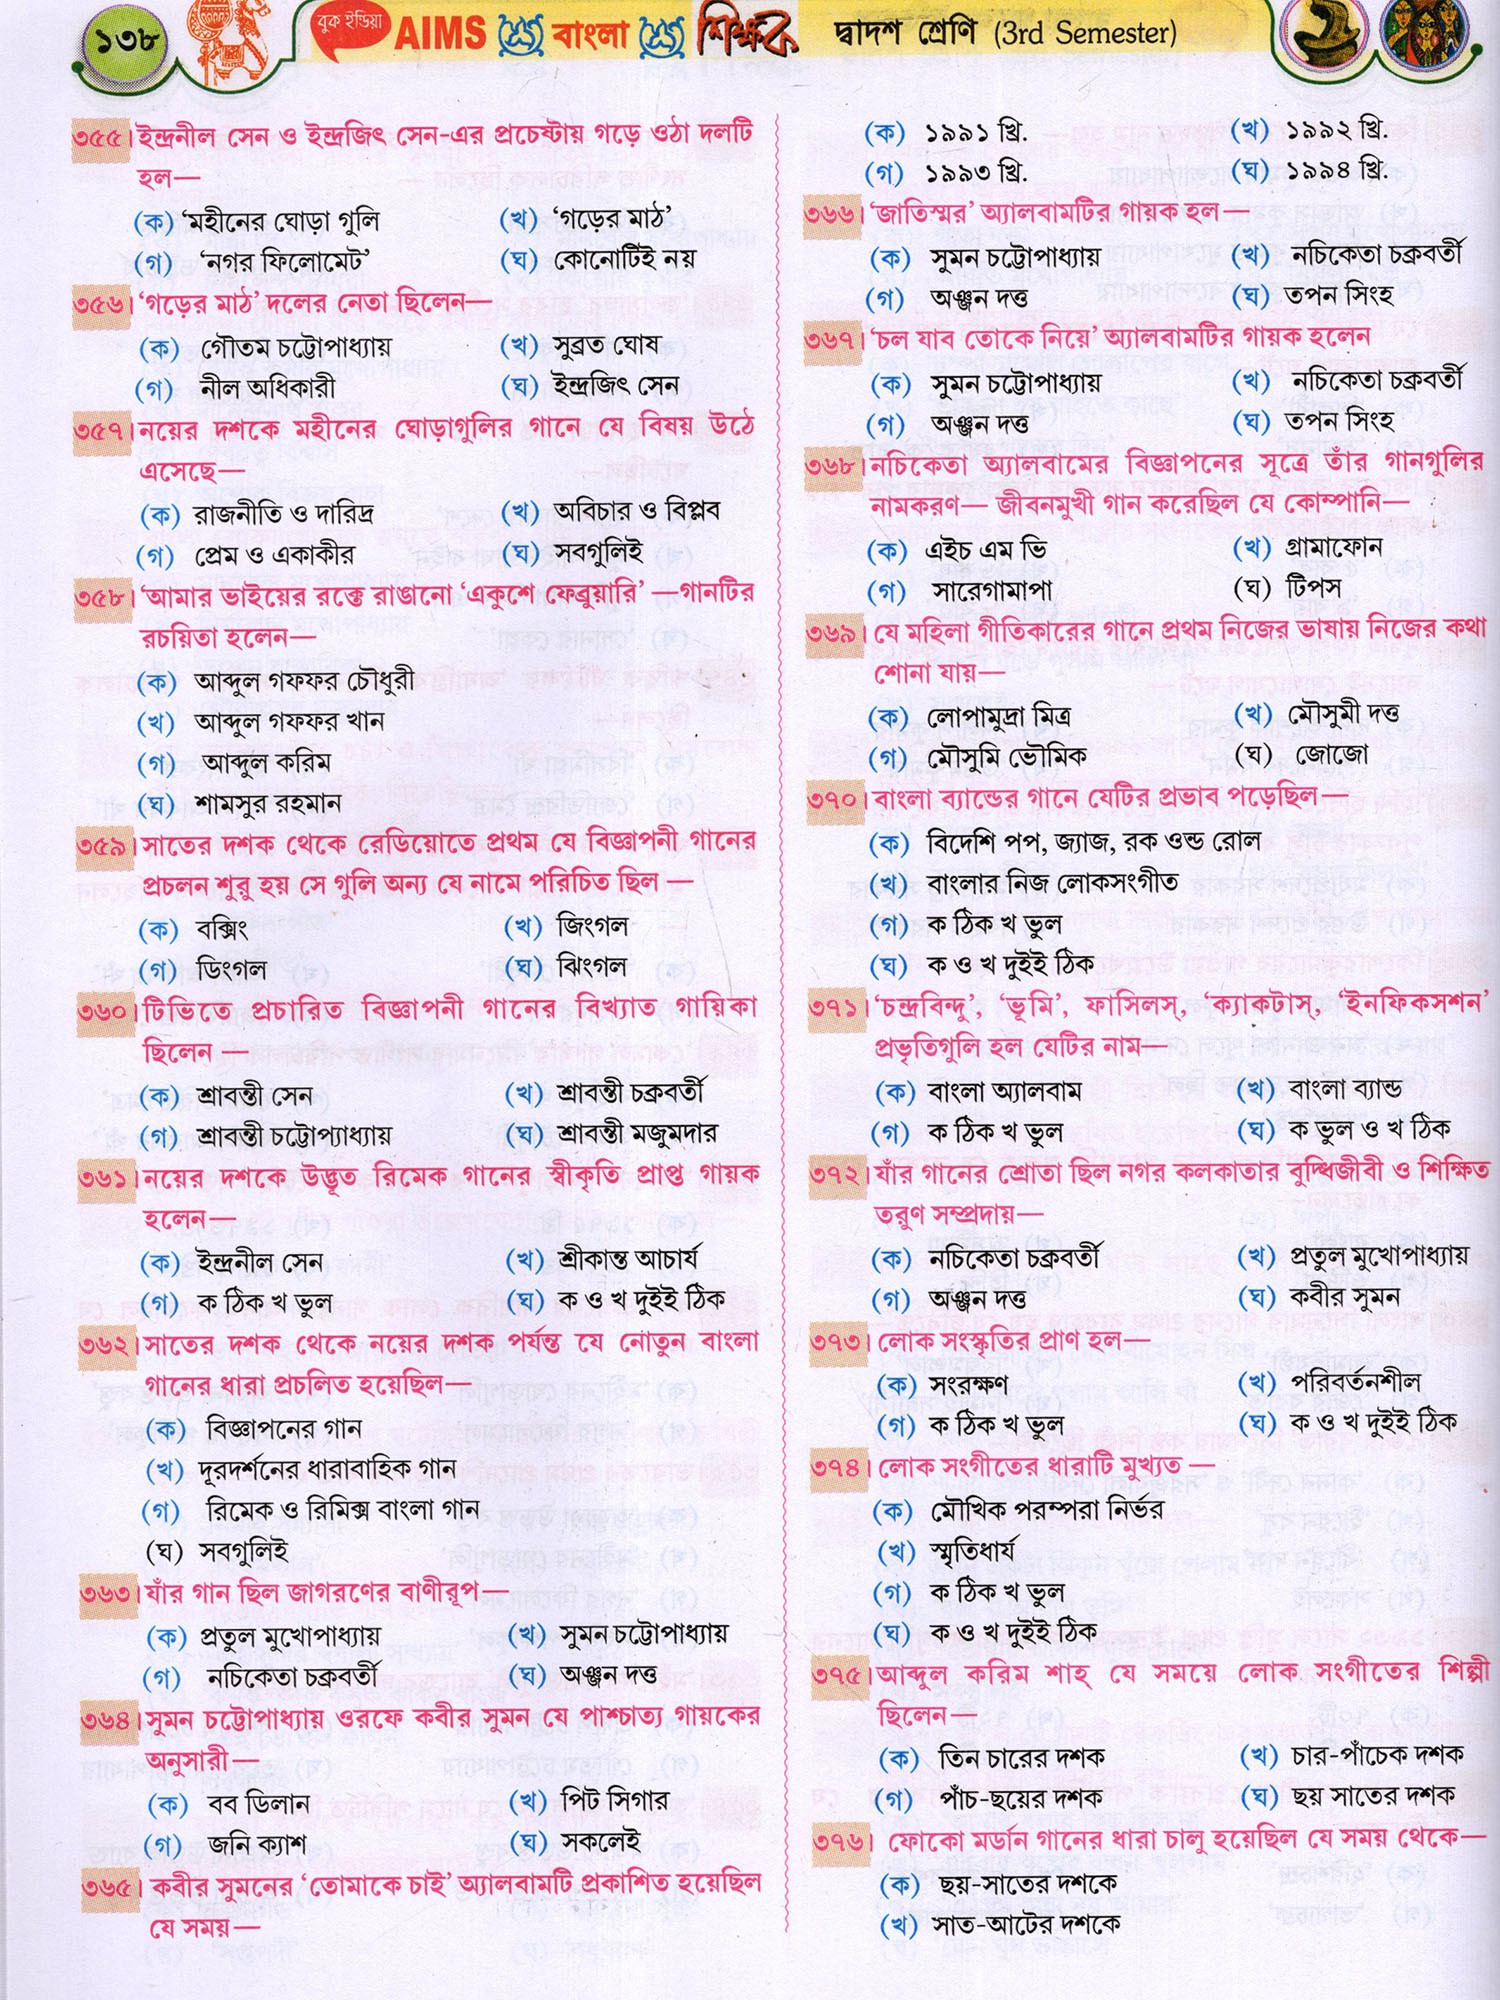 ১৩৮
বুক ইন্ডিয়া AIMS বাংলা শিক্ষক দ্বাদশ শ্রেণি (3rd Semester)
৩৫৫। ইন্দ্রনীল সেন ও ইন্দ্রজিৎ সেন-এর প্রচেষ্টায় গড়ে ওঠা দলটি
হল—
(ক) ‘মহীনের ঘোড়া গুলি (খ) ‘গড়ের মাঠ’
(গ) ‘নগর ফিলোমেট’ (ঘ) কোনোটিই নয়
৩৫৬। ‘গড়ের মাঠ’ দলের নেতা ছিলেন—
(ক) গৌতম চট্টোপাধ্যায় (খ) সুব্রত ঘোষ
(গ) নীল অধিকারী (ঘ) ইন্দ্রজিৎ সেন
৩৫৭। নয়ের দশকে মহীনের ঘোড়াগুলির গানে যে বিষয় উঠে
এসেছে—
(ক) রাজনীতি ও দারিদ্র (খ) অবিচার ও বিপ্লব
(গ) প্রেম ও একাকীর (ঘ) সবগুলিই
৩৫৮। ‘আমার ভাইয়ের রক্তে রাঙানো ‘একুশে ফেব্রুয়ারি’ —গানটির
রচয়িতা হলেন—
(ক) আব্দুল গফফর চৌধুরী
(খ) আব্দুল গফফর খান
(গ) আব্দুল করিম
(ঘ) শামসুর রহমান
৩৫৯। সাতের দশক থেকে রেডিয়োতে প্রথম যে বিজ্ঞাপনী গানের
প্রচলন শুরু হয় সে গুলি অন্য যে নামে পরিচিত ছিল —
(ক) বক্সিং (খ) জিংগল
(গ) ডিংগল (ঘ) ঝিংগল
৩৬০। টিভিতে প্রচারিত বিজ্ঞাপনী গানের বিখ্যাত গায়িকা
ছিলেন —
(ক) শ্রাবন্তী সেন (খ) শ্রাবন্তী চক্রবর্তী
(গ) শ্রাবন্তী চট্টোপ্যাধ্যায় (ঘ) শ্রাবন্তী মজুমদার
৩৬১। নয়ের দশকে উদ্ভূত রিমেক গানের স্বীকৃতি প্রাপ্ত গায়ক
হলেন—
(ক) ইন্দ্রনীল সেন (খ) শ্রীকান্ত আচার্য
(গ) ক ঠিক খ ভুল (ঘ) ক ও খ দুইই ঠিক
৩৬২। সাতের দশক থেকে নয়ের দশক পর্যন্ত যে নোতুন বাংলা
গানের ধারা প্রচলিত হয়েছিল—
(ক) বিজ্ঞাপনের গান
(খ) দূরদর্শনের ধারাবাহিক গান
(গ) রিমেক ও রিমিক্স বাংলা গান
(ঘ) সবগুলিই
৩৬৩। যাঁর গান ছিল জাগরণের বাণীরূপ—
(ক) প্রতুল মুখোপাধ্যায় (খ) সুমন চট্টোপাধ্যায়
(গ) নচিকেতা চক্রবর্তী (ঘ) অঞ্জন দত্ত
৩৬৪। সুমন চট্টোপাধ্যায় ওরফে কবীর সুমন যে পাশ্চাত্য গায়কের
অনুসারী—
(ক) বব ডিলান (খ) পিট সিগার
(গ) জনি ক্যাশ (ঘ) সকলেই
৩৬৫। কবীর সুমনের ‘তোমাকে চাই’ অ্যালবামটি প্রকাশিত হয়েছিল
যে সময়—
(ক) ১৯৯১ খ্রি. (খ) ১৯৯২ খ্রি.
(গ) ১৯৯৩ খ্রি. (ঘ) ১৯৯৪ খ্রি.
৩৬৬। ‘জাতিস্মর’ অ্যালবামটির গায়ক হল—
(ক) সুমন চট্টোপাধ্যায় (খ) নচিকেতা চক্রবর্তী
(গ) অঞ্জন দত্ত (ঘ) তপন সিংহ
৩৬৭। ‘চল যাব তোকে নিয়ে’ অ্যালবামটির গায়ক হলেন
(ক) সুমন চট্টোপাধ্যায় (খ) নচিকেতা চক্রবর্তী
(গ) অঞ্জন দত্ত (ঘ) তপন সিংহ
৩৬৮। নচিকেতা অ্যালবামের বিজ্ঞাপনের সূত্রে তাঁর গানগুলির
নামকরণ— জীবনমুখী গান করেছিল যে কোম্পানি—
(ক) এইচ এম ভি (খ) গ্রামাফোন
(গ) সারেগামাপা (ঘ) টিপস
৩৬৯। যে মহিলা গীতিকারের গানে প্রথম নিজের ভাষায় নিজের কথা
শোনা যায়—
(ক) লোপামুদ্রা মিত্র (খ) মৌসুমী দত্ত
(গ) মৌসুমি ভৌমিক (ঘ) জোজো
৩৭০। বাংলা ব্যান্ডের গানে যেটির প্রভাব পড়েছিল—
(ক) বিদেশি পপ, জ্যাজ, রক ওন্ড রোল
(খ) বাংলার নিজ লোকসংগীত
(গ) ক ঠিক খ ভুল
(ঘ) ক ও খ দুইই ঠিক
৩৭১। ‘চন্দ্রবিন্দু’, ‘ভূমি’, ফাসিলস্, ‘ক্যাকটাস্, ‘ইনফিকসশন’
প্রভৃতিগুলি হল যেটির নাম—
(ক) বাংলা অ্যালবাম (খ) বাংলা ব্যান্ড
(গ) ক ঠিক খ ভুল (ঘ) ক ভুল ও খ ঠিক
৩৭২। যাঁর গানের শ্রোতা ছিল নগর কলকাতার বুদ্ধিজীবী ও শিক্ষিত
তরুণ সম্প্রদায়—
(ক) নচিকেতা চক্রবর্তী (খ) প্রতুল মুখোপাধ্যায়
(গ) অঞ্জন দত্ত (ঘ) কবীর সুমন
৩৭৩। লোক সংস্কৃতির প্রাণ হল—
(ক) সংরক্ষণ (খ) পরিবর্তনশীল
(গ) ক ঠিক খ ভুল (ঘ) ক ও খ দুইই ঠিক
৩৭৪। লোক সংগীতের ধারাটি মুখ্যত —
(ক) মৌখিক পরম্পরা নির্ভর
(খ) স্মৃতিধার্য
(গ) ক ঠিক খ ভুল
(ঘ) ক ও খ দুইই ঠিক
৩৭৫। আব্দুল করিম শাহ্ যে সময়ে লোক সংগীতের শিল্পী
ছিলেন—
(ক) তিন চারের দশক (খ) চার-পাঁচেক দশক
(গ) পাঁচ-ছয়ের দশক (ঘ) ছয় সাতের দশক
৩৭৬। ফোকো মর্ডান গানের ধারা চালু হয়েছিল যে সময় থেকে—
(ক) ছয়-সাতের দশকে
(খ) সাত-আটের দশকে